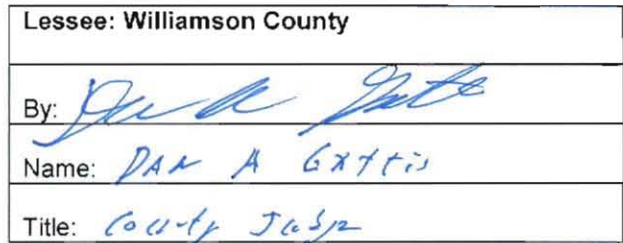 Lessee: Williamson County
By: Dan A Gattis
Name: DAN A GATTIS
Title: County Judge